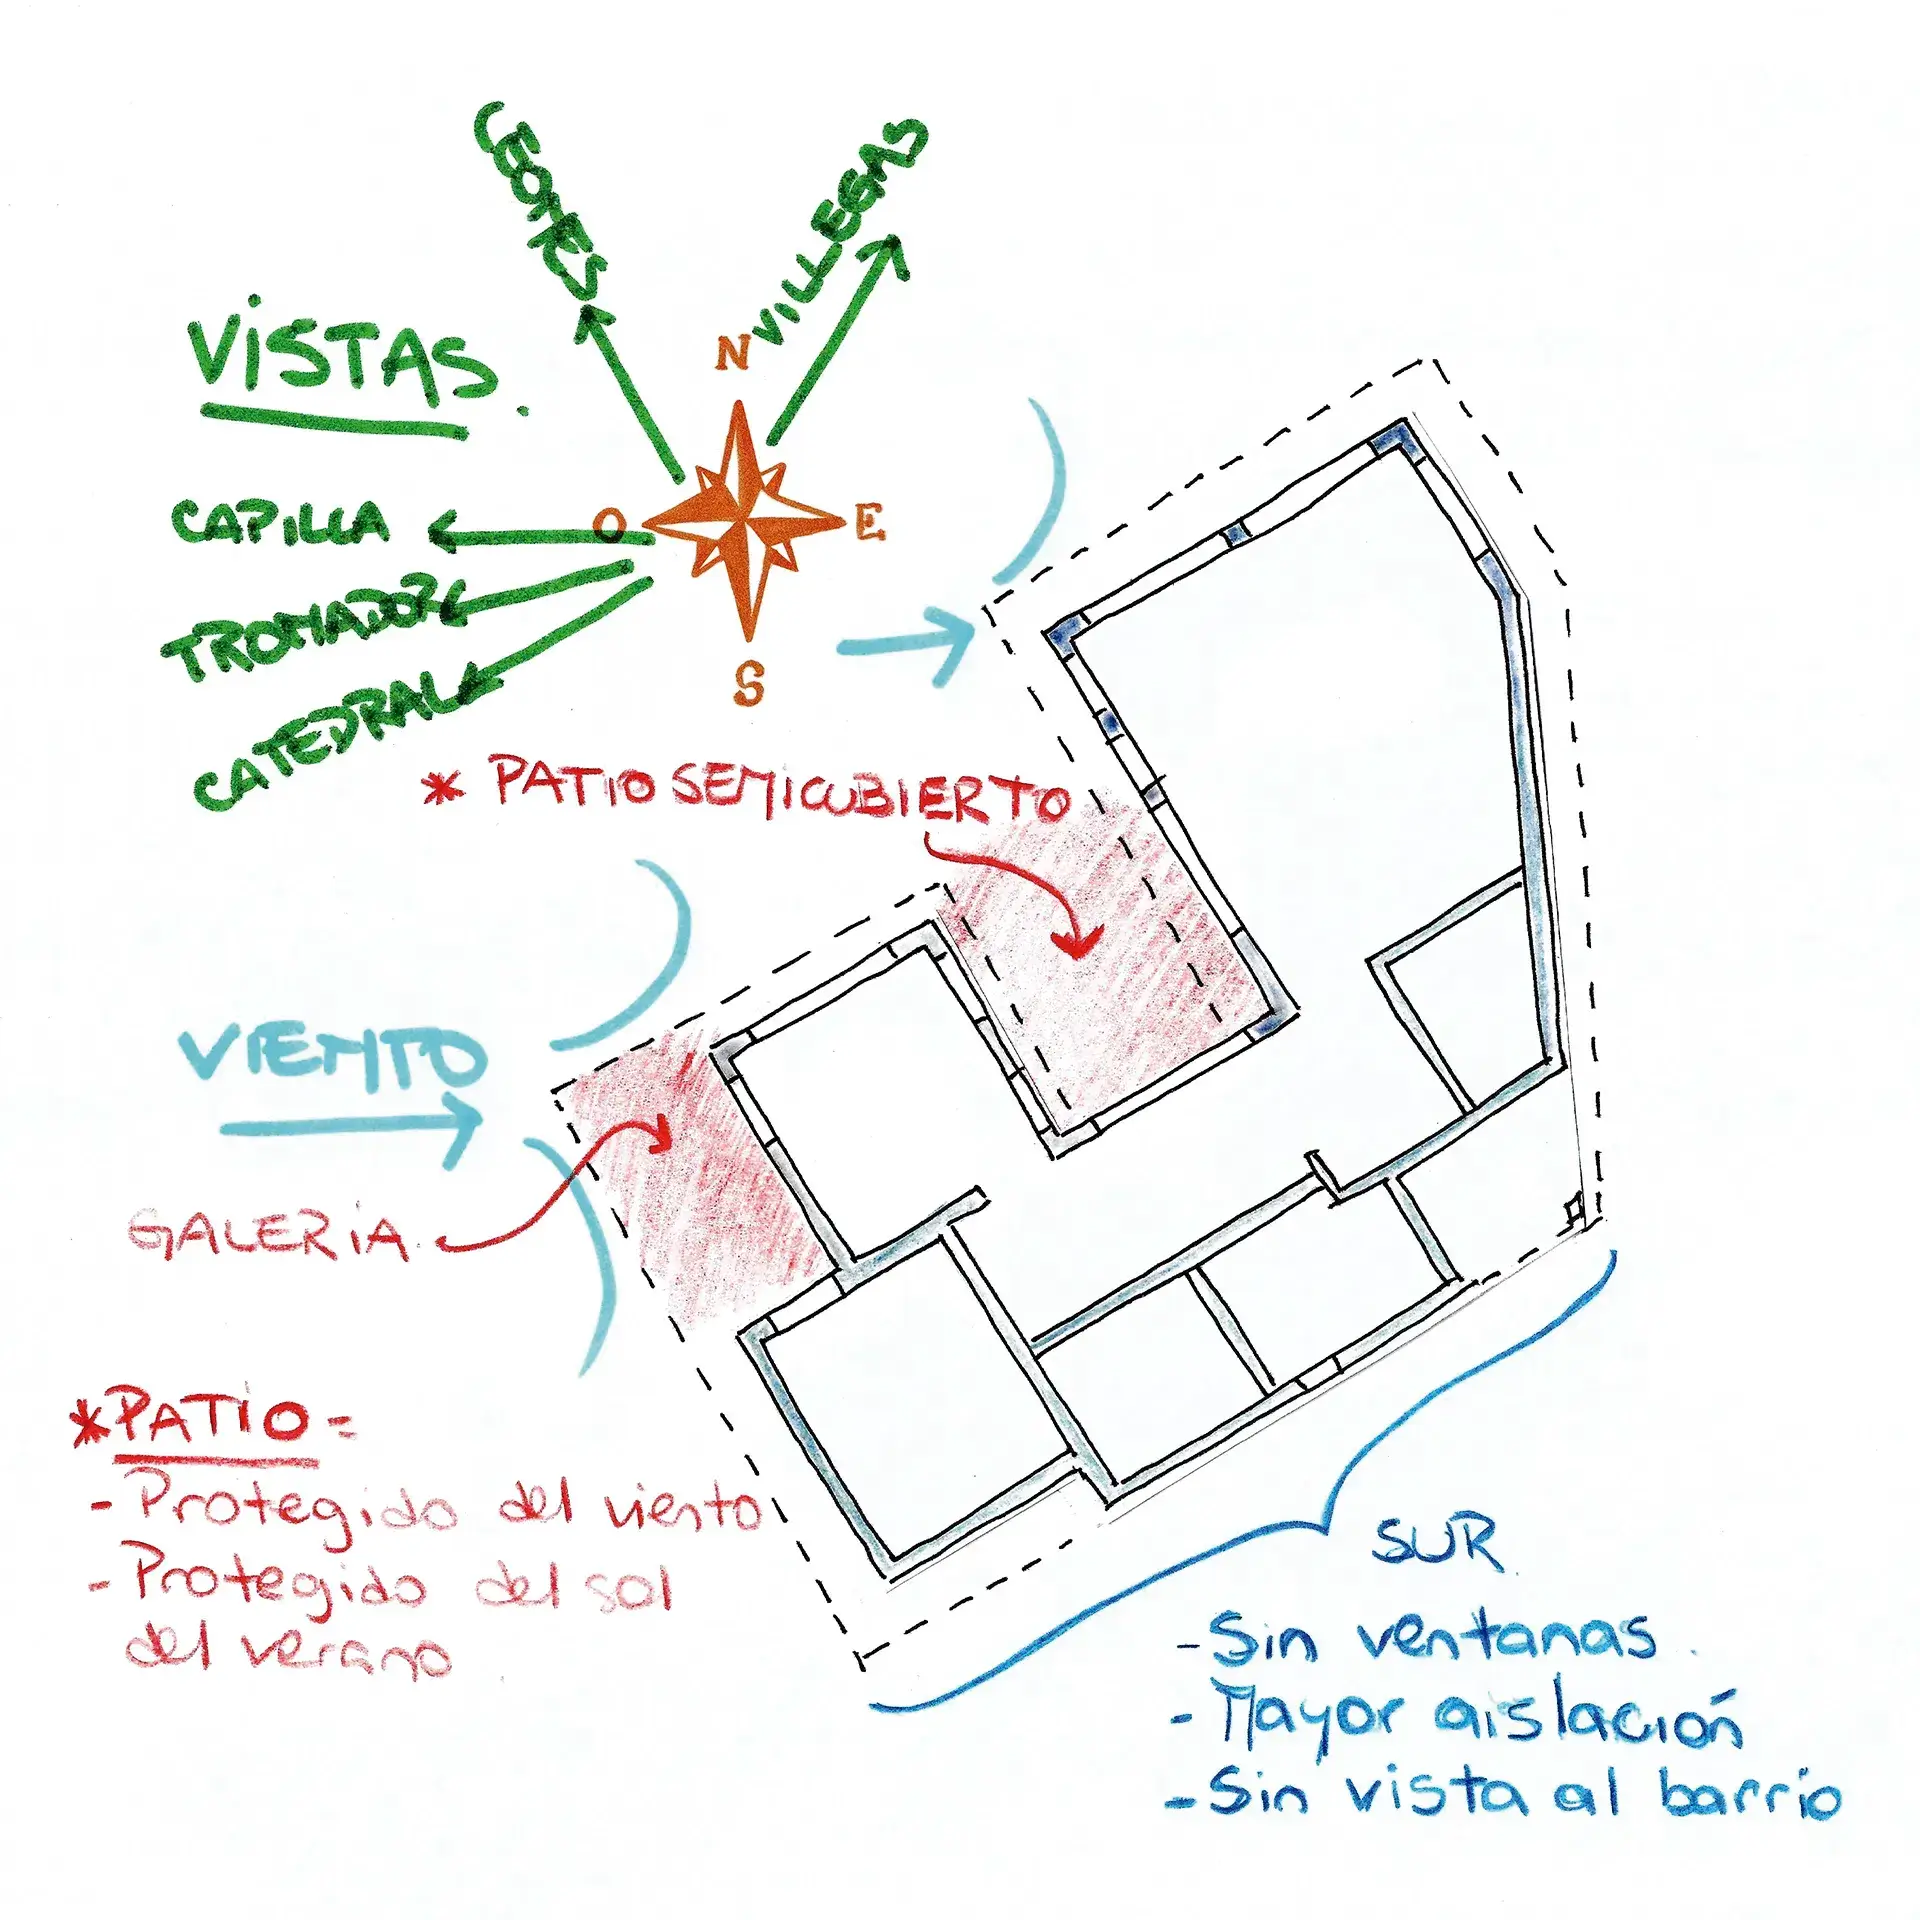 LEONES
VILLEGAS
VISTAS.
N
CAPILLA
O
E
TRONADOR
S
CATEDRAL
* PATIO SEMICUBIERTO
VIENTO
GALERIA.
*PATIO=
- Protegido del viento
- Protegido del sol
del verano
SUR
- Sin ventanas.
- Mayor aislación
- Sin vista al barrio